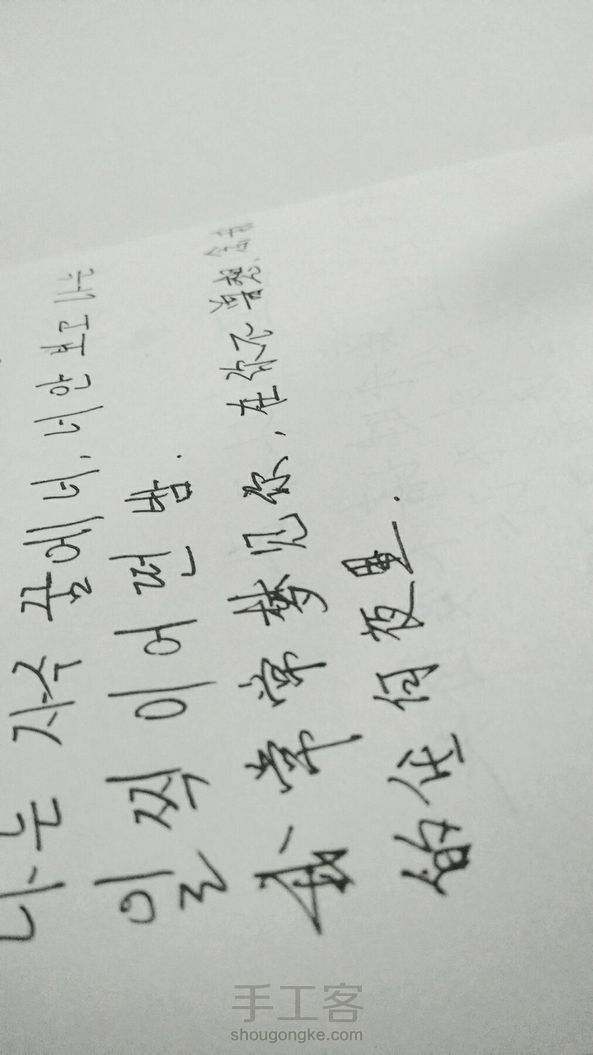 나는 자주 꿈에 너, 너 안 보고 나는
일찍이 어떤 밤.
我常常梦见你, 在你不曾想念我
的任何夜里.
手工客
shougongke.com